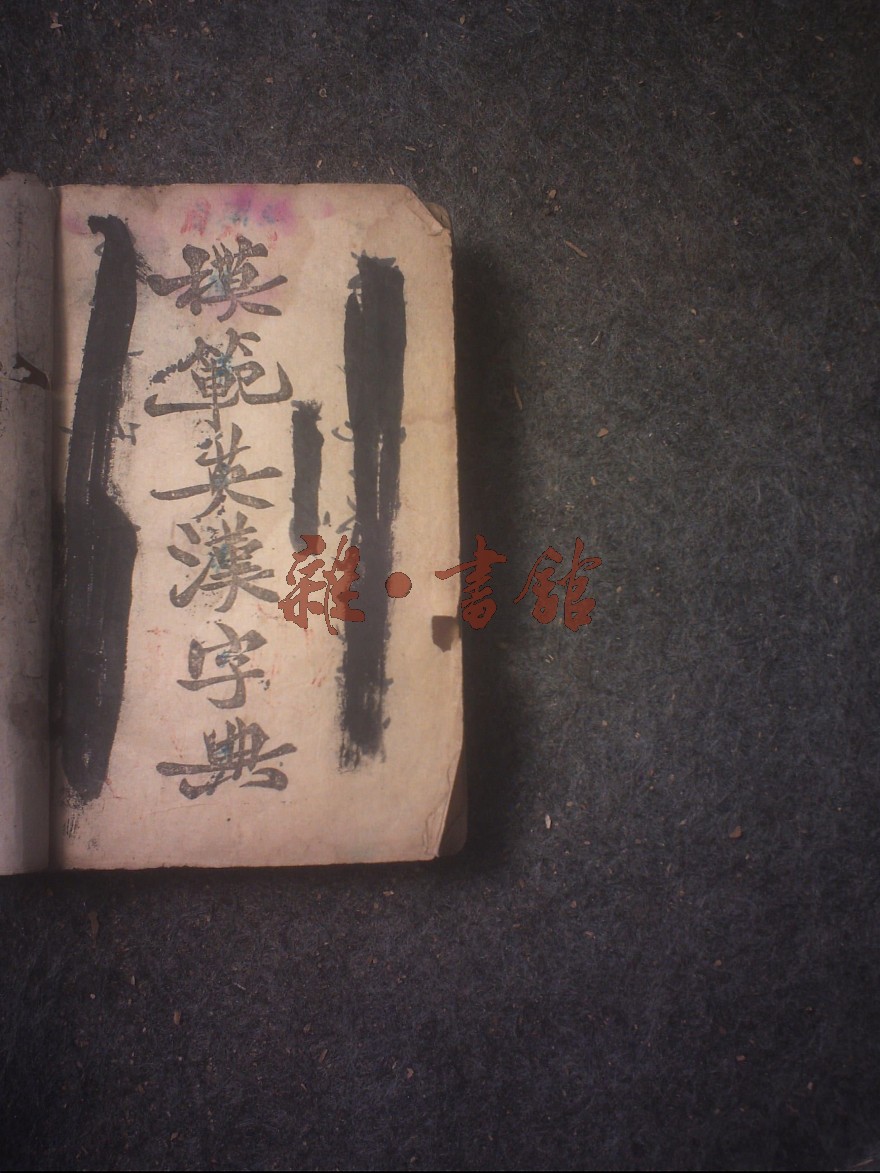 模範英漢字典
雜·書館